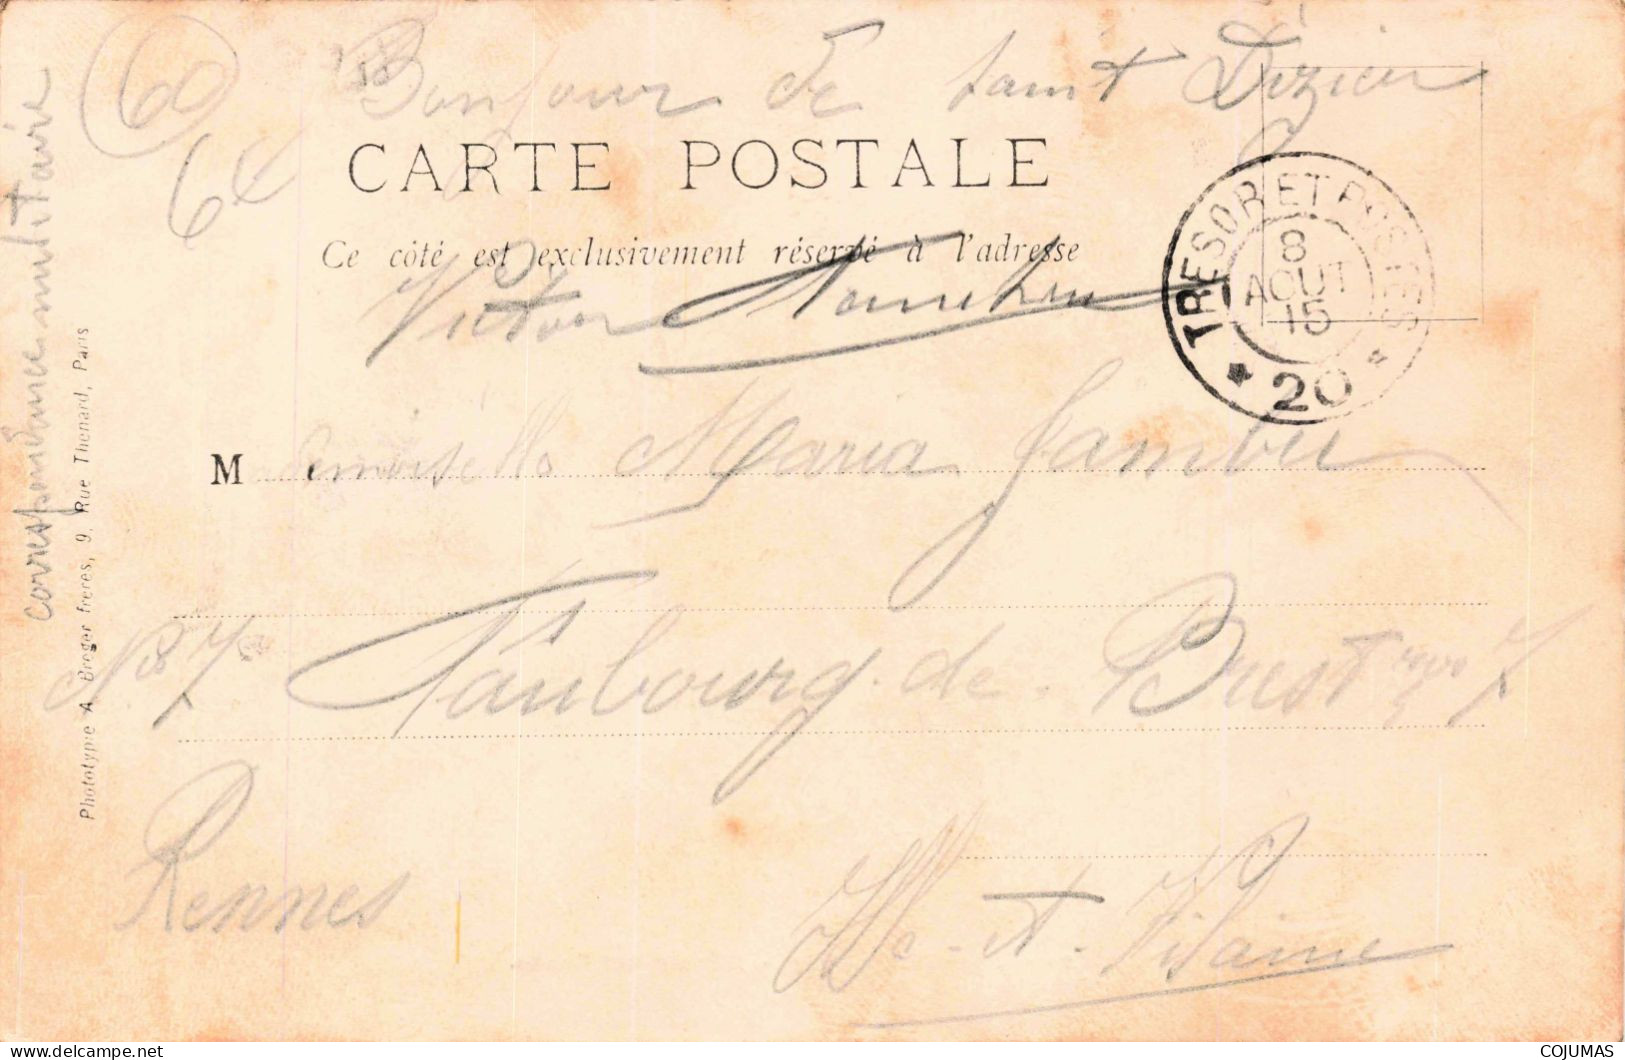 60
64
Bonjour de saint Dizier
CARTE POSTALE
Ce côté est exclusivement réservé à l'adresse
Victor
TRESOR ET POSTES
8
AOUT
15
* 20 *
correspondance militaire
Phototypie A. Breger frères, 9, Rue Thenard, Paris
Mademoiselle Maria
No 7 Faubourg de Brest 7
Rennes
Ille-et-Vilaine
COJUMAS
delcampe.net